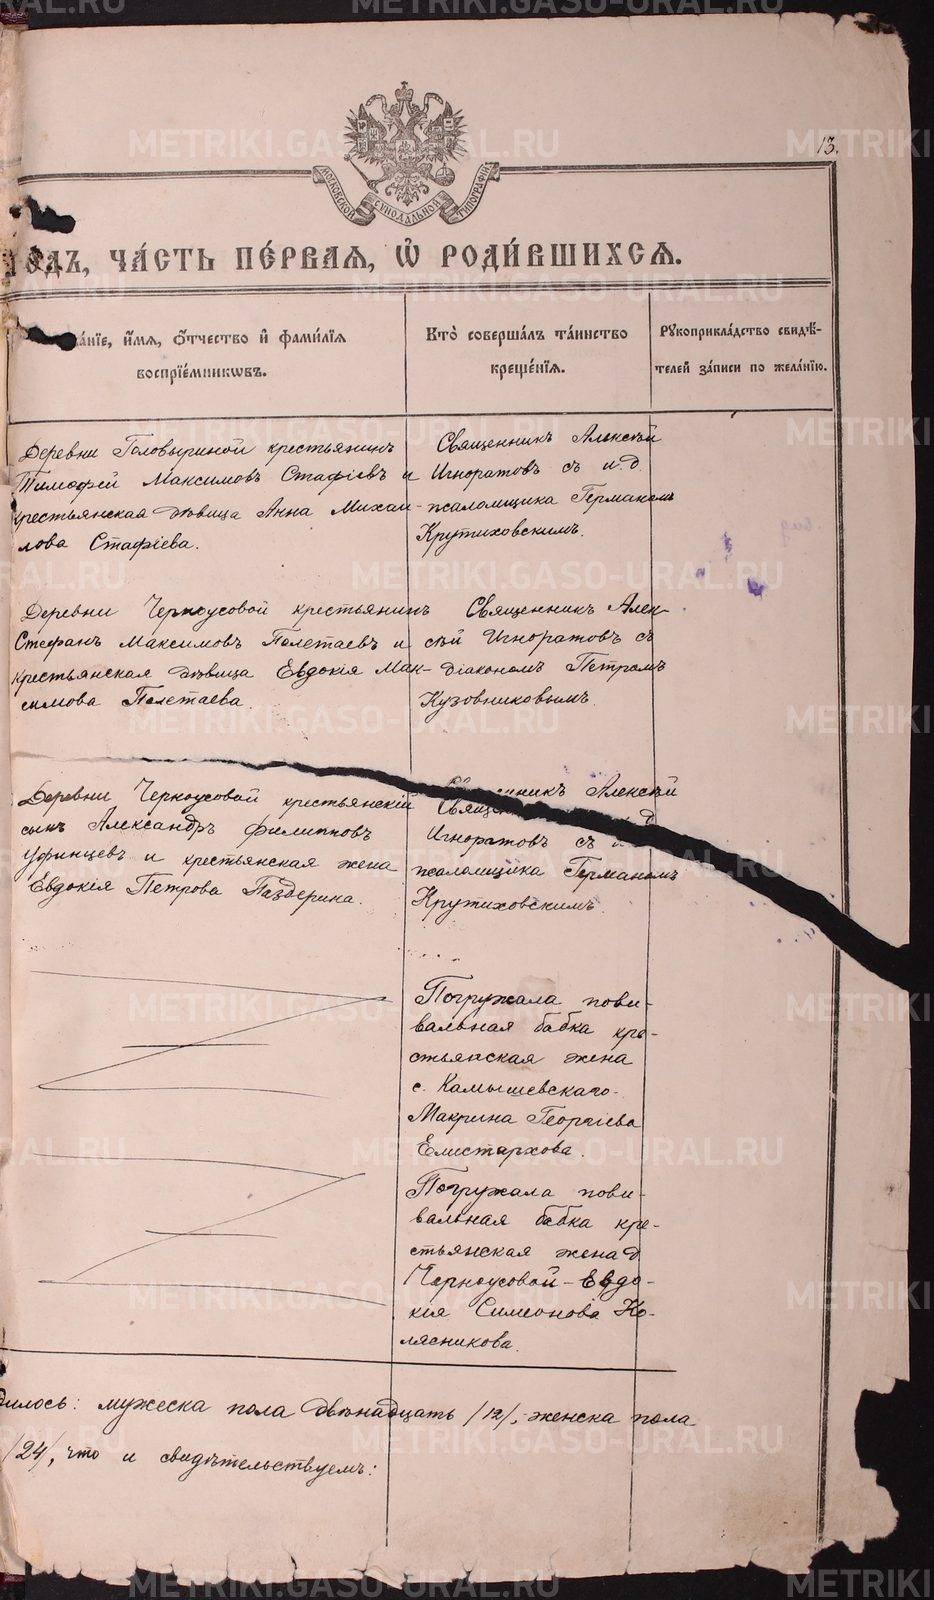 13.
МОСКОВСКОЙ СѴНОДАЛЬНОЙ ТИПОГРАФІИ
одъ, ча́сть пе́рвая, ѡ҆ роди́вшихся.
а́нїе, и҆́мя, ѻ҆́тчество и҆ фами́лїя
воспрїе́мникѡвъ.
Кто̀ соверша́лъ та́инство
креще́нїя.
Рꙋкоприкла́дство свидѣ́-
телей за́писи по жела́нїю.
Деревни Головыриной крестьянинъ
Тимофей Максимовъ Стафіевъ и
крестьянская дѣвица Анна Михаи-
лова Стафіева.
Священникъ Алексѣй
Игноратовъ съ и. д.
псаломщика Германомъ
Крутиховскимъ.
Деревни Черноусовой крестьянинъ
Стефанъ Максимовъ Полетаевъ и
крестьянская дѣвица Евдокія Мак-
симова Полетаева.
Священникъ Алек-
сѣй Игноратовъ съ
діакономъ Петромъ
Кузовниковымъ.
Деревни Черноусовой крестьянскій
сынъ Александръ Филипповъ
Уфинцевъ и крестьянская жена
Евдокія Петрова Паздерина.
Священникъ Алексѣй
Игноратовъ съ и. д.
псаломщика Германомъ
Крутиховскимъ.
Погружала пови-
вальная бабка кре-
стьянская жена
с. Камышевскаго
Макрина Георгіева
Елистархова.
Погружала пови-
вальная бабка кре-
стьянская жена д.
Черноусовой - Евдо-
кія Симеонова Ко-
лясникова.
дилось: мужеска пола двѣнадцать /12/, женска пола
/24/, что и свидѣтельствуемъ:
METRIKI.GASO-URAL.RU